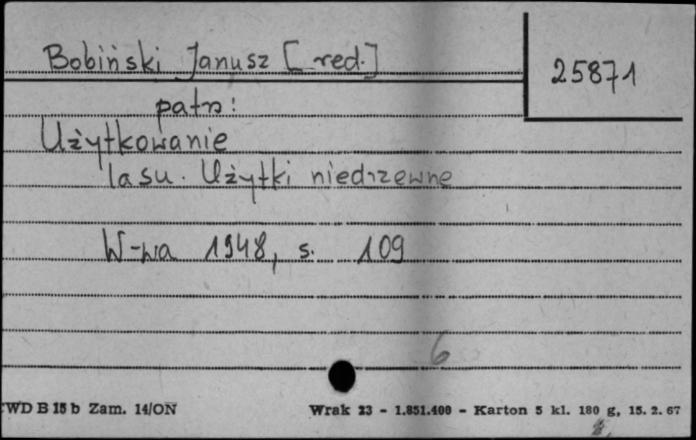 Bobiński Janusz [red.]
25871
patrz:
Użytkowanie
lasu. Użytki niedrzewne
W-wa 1948, s. 109
6
WD B 15 b Zam. 14/ON Wrak 23 - 1.851.400 - Karton 5 kl. 180 g, 15. 2. 67